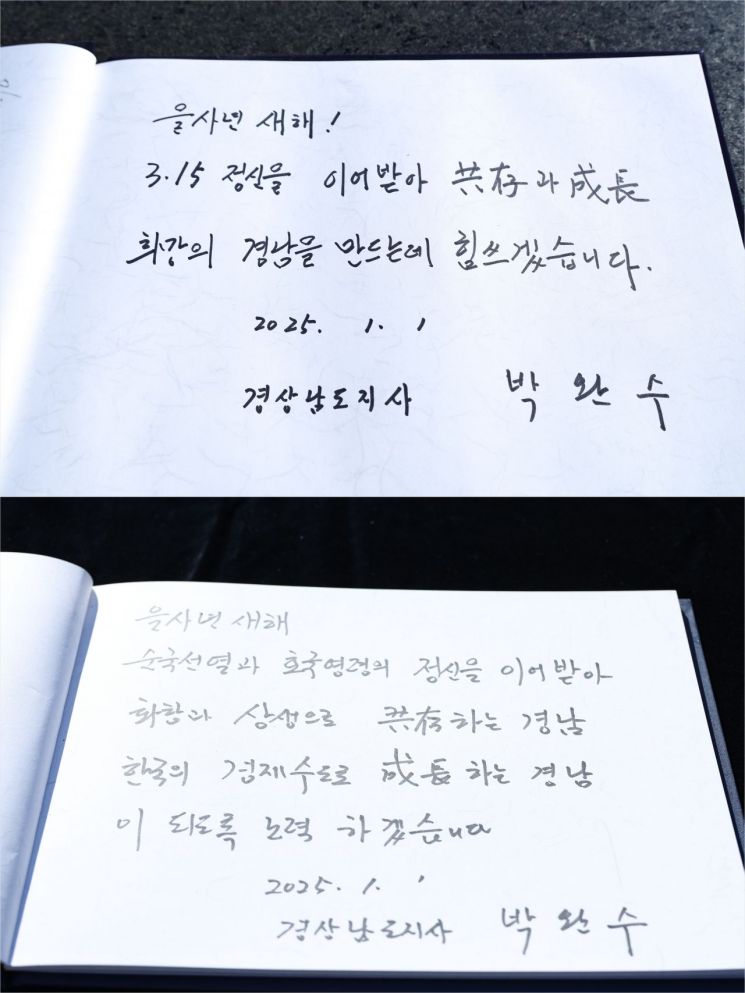 을사년 새해!
3.15 정신을 이어받아 共存과 成長
희망의 경남을 만드는데 힘쓰겠습니다.
2025. 1. 1
경상남도지사 박완수
을사년 새해
순국선열과 호국영령의 정신을 이어받아
화합과 상생으로 共存하는 경남
한국의 경제수도로 成長하는 경남
이 되도록 노력 하겠습니다
2025. 1. 1
경상남도지사 박완수